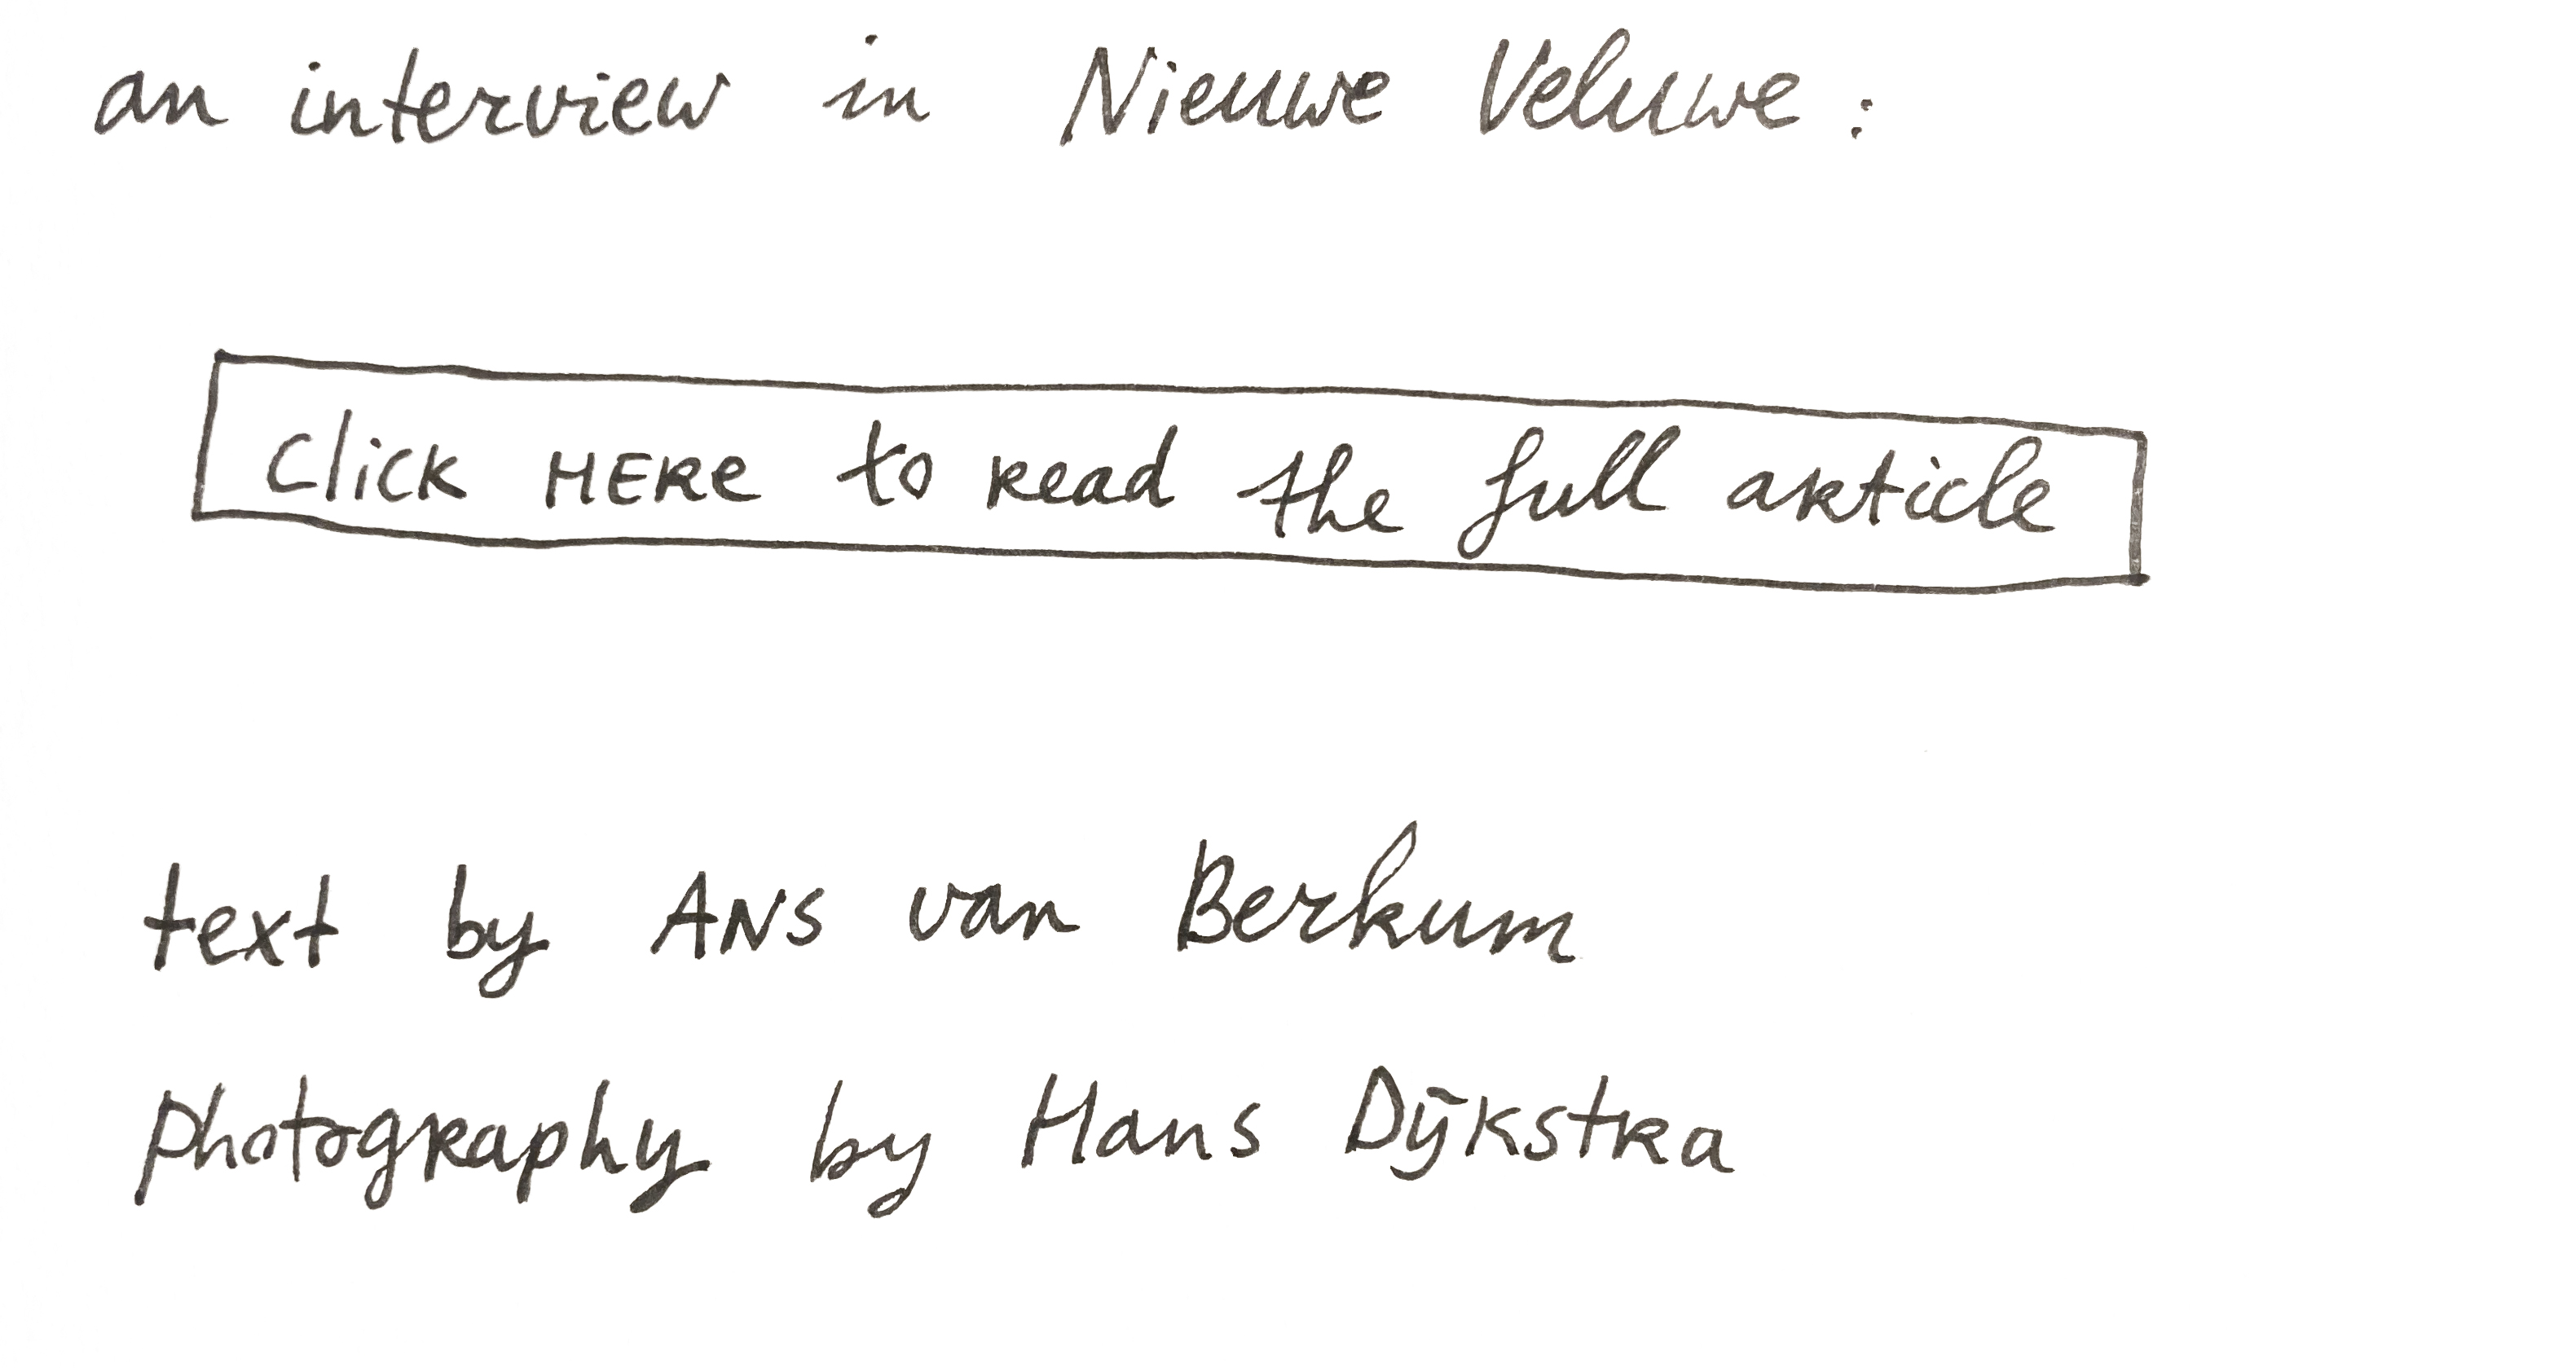 an interview in Nieuwe Veluwe:
click HERe to read the full article
text by ANS van Berkum
photography by Hans Dijkstra